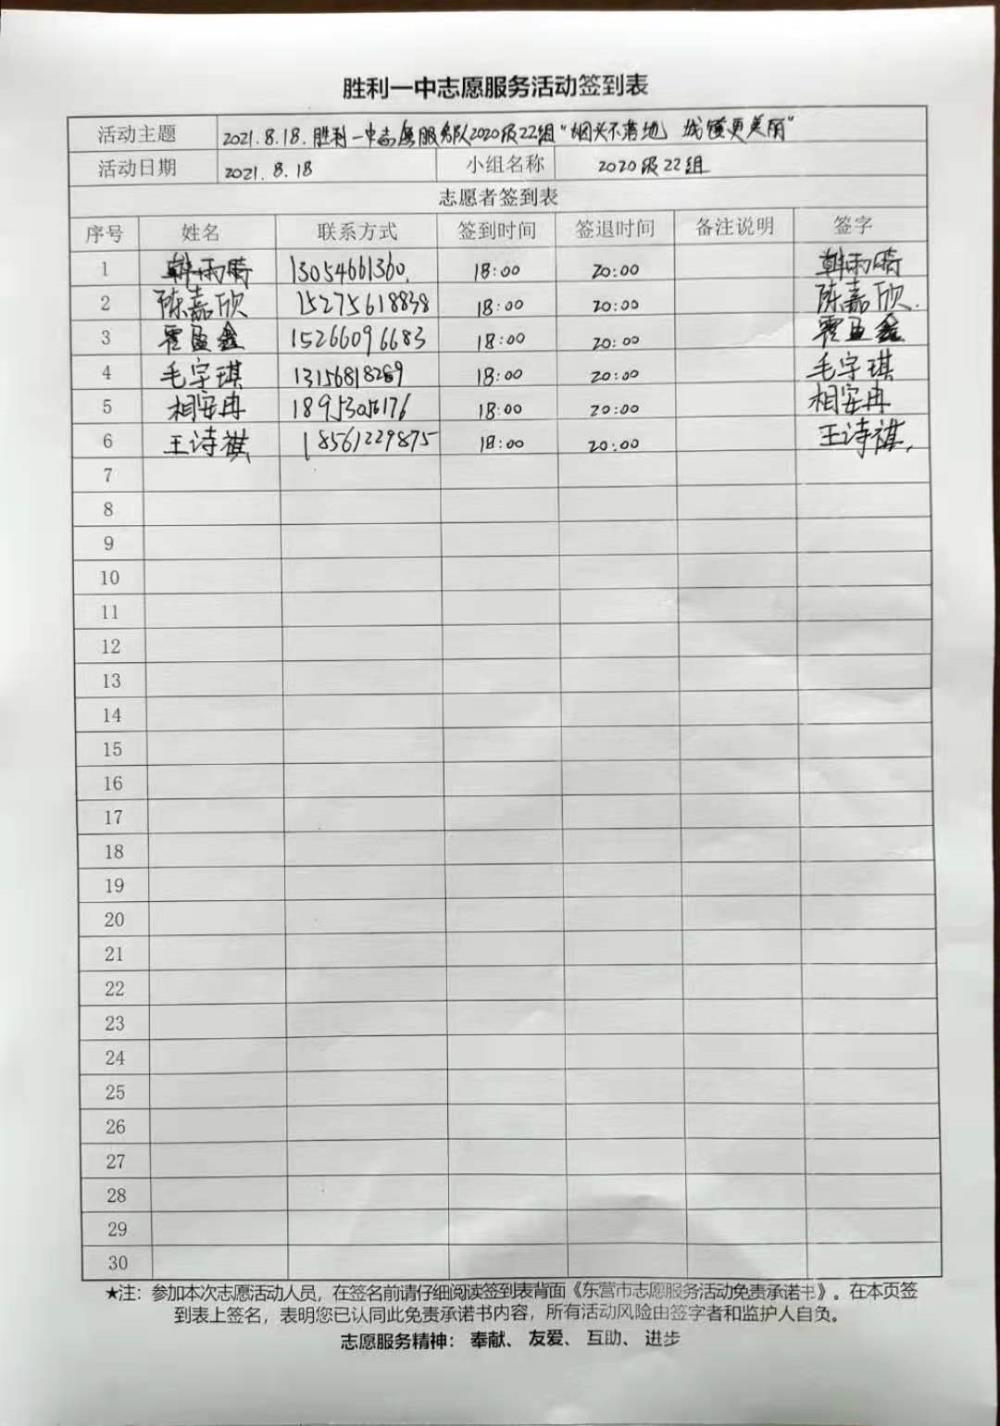 胜利一中志愿服务活动签到表
活动主题 2021.8.18.胜利一中志愿服务队2020级22组“烟头不落地 城镇更美丽”
活动日期 2021.8.18 小组名称 2020级22组
志愿者签到表
序号 姓名 联系方式 签到时间 签退时间 备注说明 签字
1 韩雨晴 13054661360 18:00 20:00 韩雨晴
2 陈嘉欣 15275618838 18:00 20:00 陈嘉欣
3 霍孟鑫 15266096683 18:00 20:00 霍孟鑫
4 毛宇琪 13156818289 18:00 20:00 毛宇琪
5 相安冉 18:00 20:00 相安冉
6 王诗祺 18561229875 18:00 20:00 王诗祺
7
8
9
10
11
12
13
14
15
16
17
18
19
20
21
22
23
24
25
26
27
28
29
30
★注：参加本次志愿活动人员，在签名前请仔细阅读签到表背面《东营市志愿服务活动免责承诺书》。在本页签
到表上签名，表明您已认同此免责承诺书内容，所有活动风险由签字者和监护人自负。
志愿服务精神： 奉献、 友爱、 互助、 进步